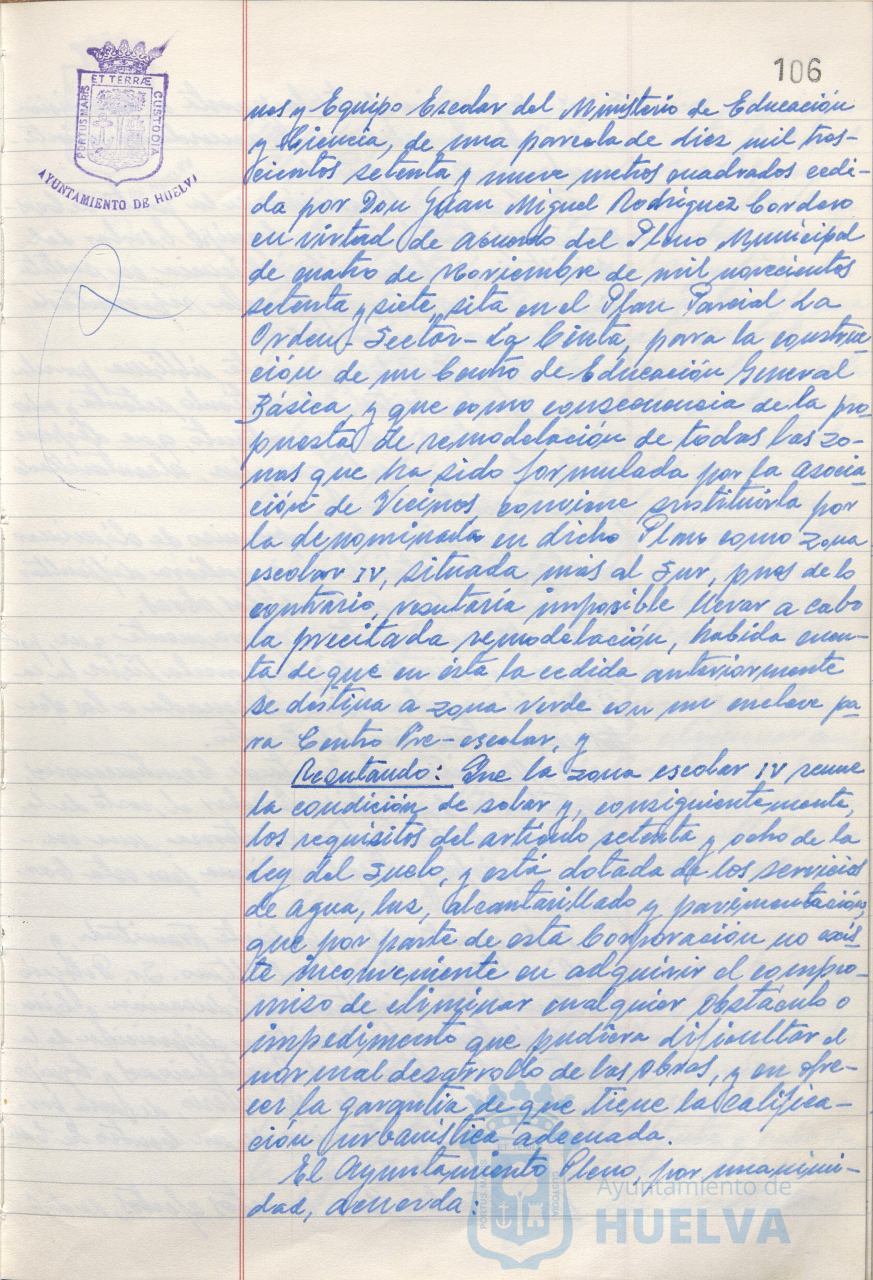 106
ET TERRÆ
PORTUS MARIS
CUSTODIA
AYUNTAMIENTO DE HUELVA
nes y Equipo Escolar del Ministerio de Educación
y Ciencia, de una parcela de diez mil tres-
cientos setenta y nueve metros cuadrados cedi-
da por Don Juan Miguel Rodríguez Cordero
en virtud de acuerdo del Pleno Municipal
de cuatro de Noviembre de mil novecientos
setenta y siete, sita en el Plan Parcial La
Orden - Sector - La Cinta, para la construc-
ción de un Centro de Educación General
Básica, y que como consecuencia de la pro-
puesta de remodelación de todas las zo-
nas que ha sido formulada por la asocia-
ción de Vecinos, conviene sustituirla por
la denominada en dicho Plano como zona
escolar IV, situada más al Sur, pues de lo
contrario, resutaría imposible llevar a cabo
la precitada remodelación, habida cuen-
ta de que en ésta la cedida anteriormente
se destina a zona verde con un enclave pa-
ra Centro Pre-escolar, y
Resutando: Que la zona escolar IV reune
la condición de solar y, consiguientemente,
los requisitos del artículo setenta y ocho de la
Ley del Suelo, y está dotada de los servicios
de agua, luz, alcantarillado y pavimentación,
que por parte de esta Corporación no exis-
te inconveniente en adquirir el compro-
miso de eliminar cualquier obstáculo o
impedimento que pudiera dificultar el
normal desarrollo de las obras, y en ofre-
cer la garantía de que tiene la califica-
ción urbanística adecuada.
El Ayuntamiento Pleno, por unanimi-
dad, acuerda:
Ayuntamiento de
HUELVA